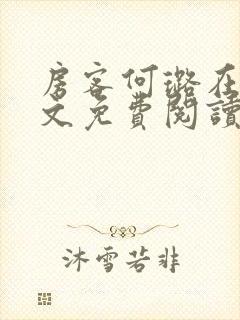 房客何璐在
文免費閱讀
沐雪若非